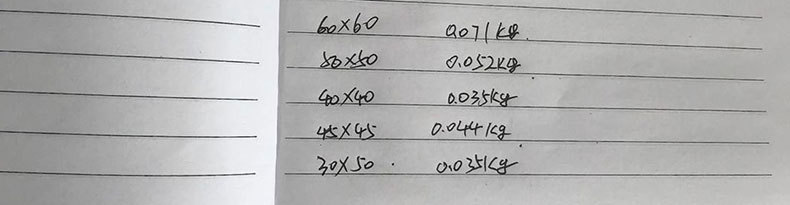 60×60 0.071kg.
50×50 0.052kg
40×40 0.035kg
45×45 0.044kg
30×50. 0.035kg